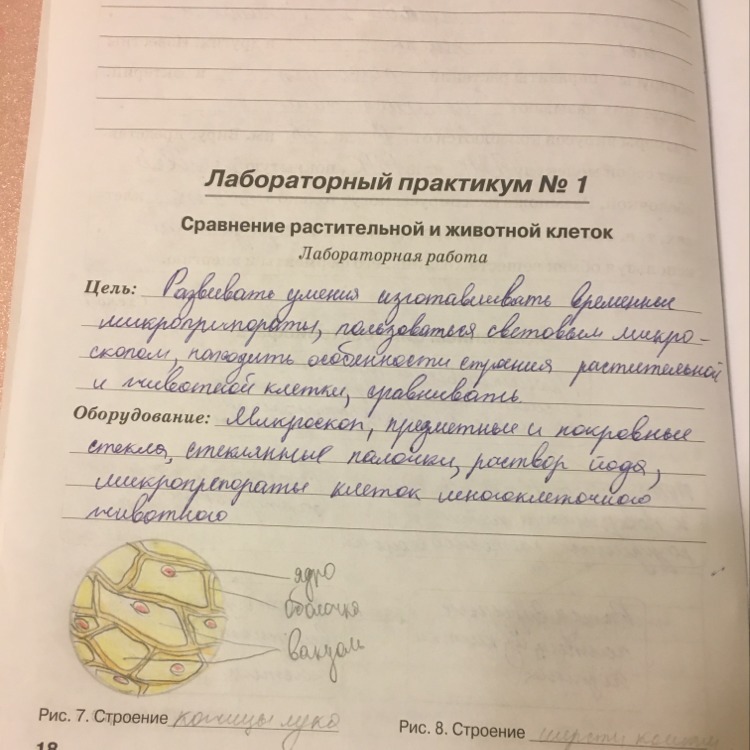 Лабораторный практикум № 1
Сравнение растительной и животной клеток
Лабораторная работа
Цель: Развивать умения изготавливать временные
микроприпораты, пользоваться световым микро-
скопом, находить особенности строения растительной
и животной клетки, сравнивать.
Оборудование: Микроскоп, предметные и покровные
стекла, стеклянные палочки, раствор йода,
микропрепораты клеток многоклеточного
животного
ядро
оболочка
вакуоль
Рис. 7. Строение кожицы лука
Рис. 8. Строение
18